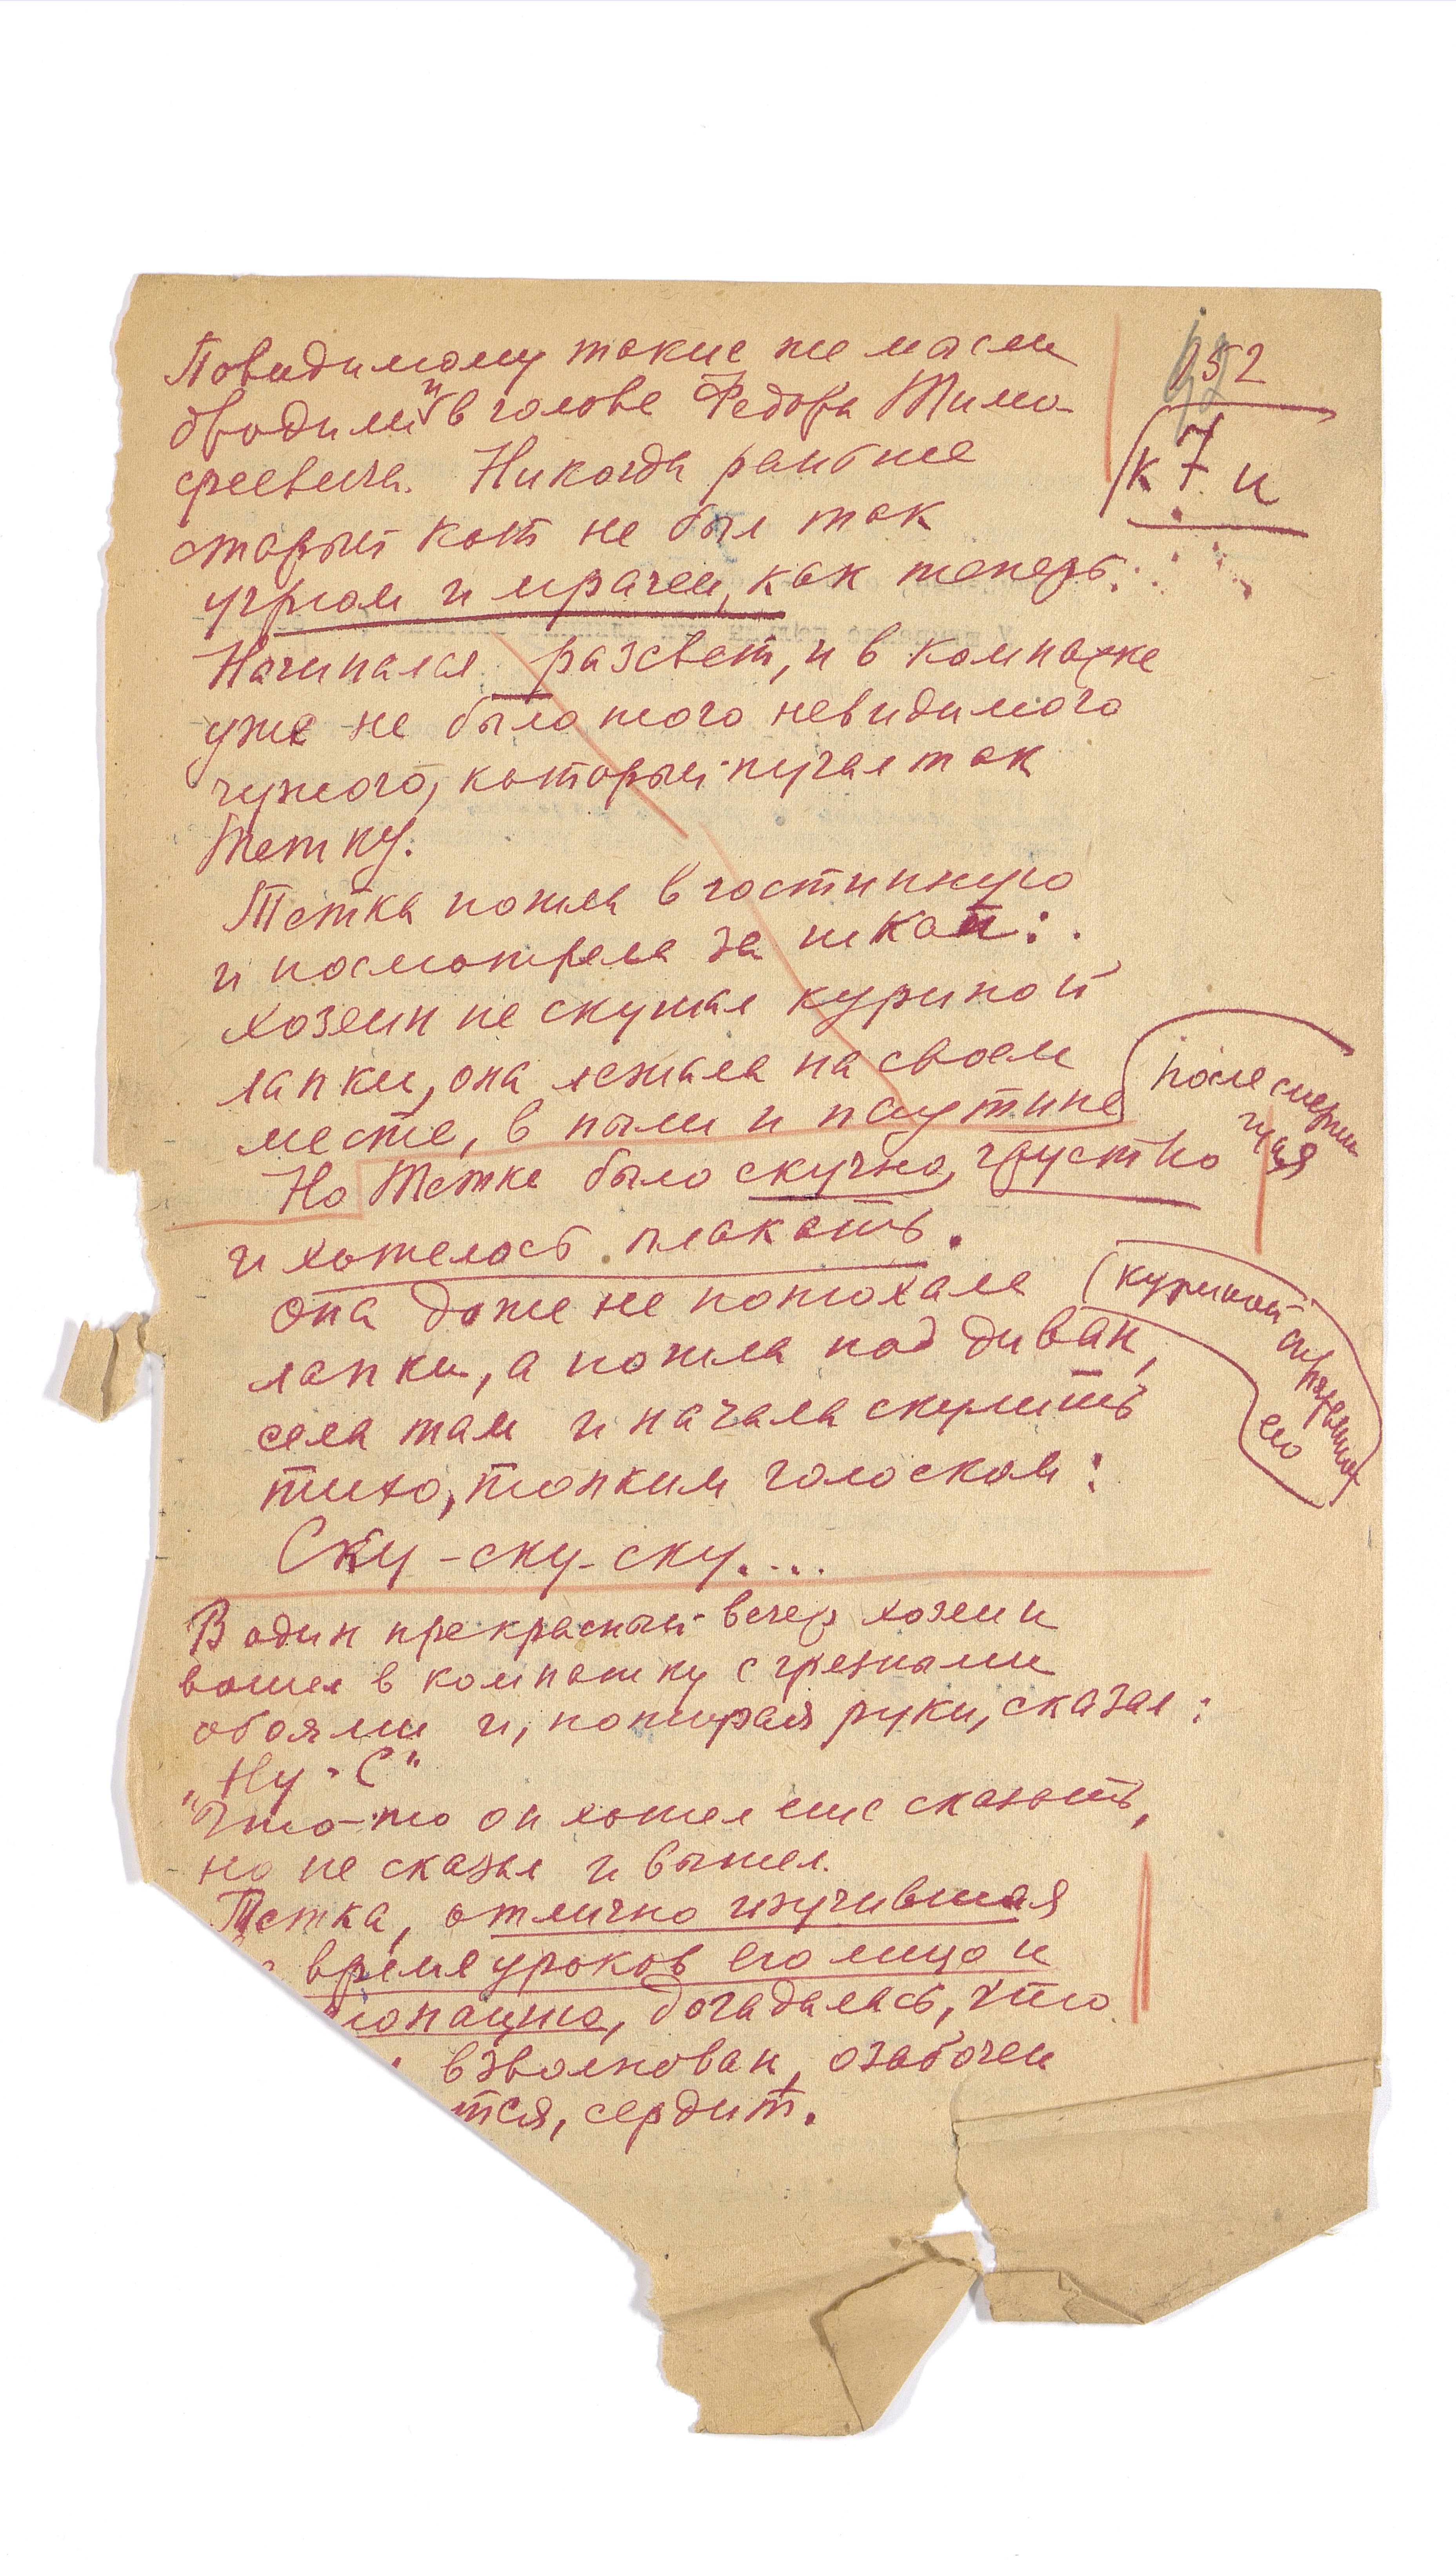 152
к 7 и
Повидимому такие же мысли
бродили и в голове Федора Тимо-
феевича. Никогда раньше
старый кот не был так
угрюм и мрачен, как теперь.
Начинался разсвет, и в комнатке
уже не было того невидимого
чужого, который пугал так
Тетку.
Тетка пошла в гостинную
и посмотрела за шкап:
хозеин не скушал куриной
лапки, она лежала на своем
месте, в пыли и паутине
после смерти
гуся
Но Тетке было скучно, грустно
и хотелось плакать.
она даже не понюхала
куриной
спрятанной
ею
лапки, а пошла под диван,
села там и начала скулить
тихо, тонким голоском:
Ску-ску-ску....
В один прекрасный вечер хозеин
вошел в комнатку с грезными
обоями и, потирая руки, сказал:
„Ну-с"
Что-то он хотел еще сказать,
но не сказал и вышел.
Тетка, отлично изучившая
время уроков его лицо и
интонацию, догадалась, что
взволнован, озабочен
тся, сердит.